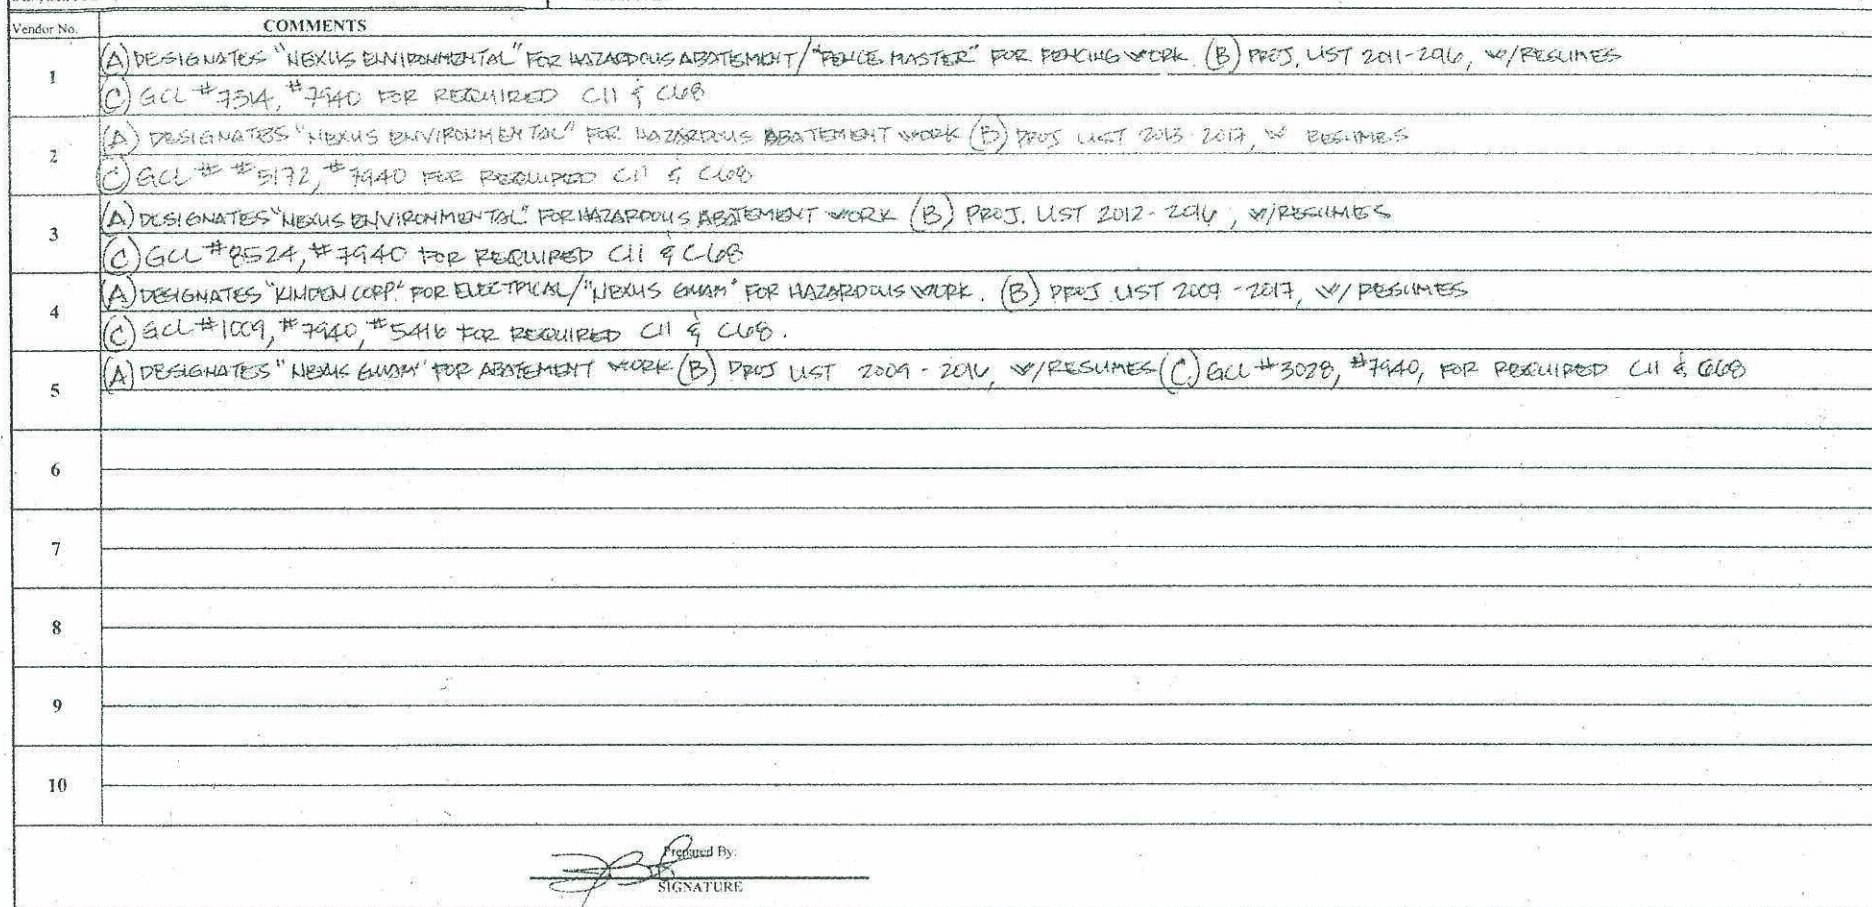 Vendor No. COMMENTS
1 (A) DESIGNATES "NEXUS ENVIRONMENTAL" FOR HAZARDOUS ABATEMENT/"FENCE MASTER" FOR FENCING WORK. (B) PROJ. LIST 2011-2016, W/RESUMES
(C) GCL #7314, #7940 FOR REQUIRED C11 & C68
2 (A) DESIGNATES "NEXUS ENVIRONMENTAL" FOR HAZARDOUS ABATEMENT WORK (B) PROJ LIST 2013-2017, W RESUMES
(C) GCL # #5172, #7940 FOR REQUIRED C11 & C68
3 (A) DESIGNATES "NEXUS ENVIRONMENTAL" FOR HAZARDOUS ABATEMENT WORK (B) PROJ. LIST 2012-2016, W/RESUMES
(C) GCL #8524, #7940 FOR REQUIRED C11 & C68
4 (A) DESIGNATES "KINDEN CORP." FOR ELECTRICAL/"NEXUS GUAM" FOR HAZARDOUS WORK. (B) PROJ LIST 2007-2017, W/ RESUMES
(C) GCL #1009, #7940, #5416 FOR REQUIRED C11 & C68.
5 (A) DESIGNATES "NEXUS GUAM" FOR ABATEMENT WORK (B) PROJ LIST 2009-2016, W/RESUMES (C) GCL #3028, #7940, FOR REQUIRED C11 & C68
6
7
8
9
10
Prepared By:
SIGNATURE